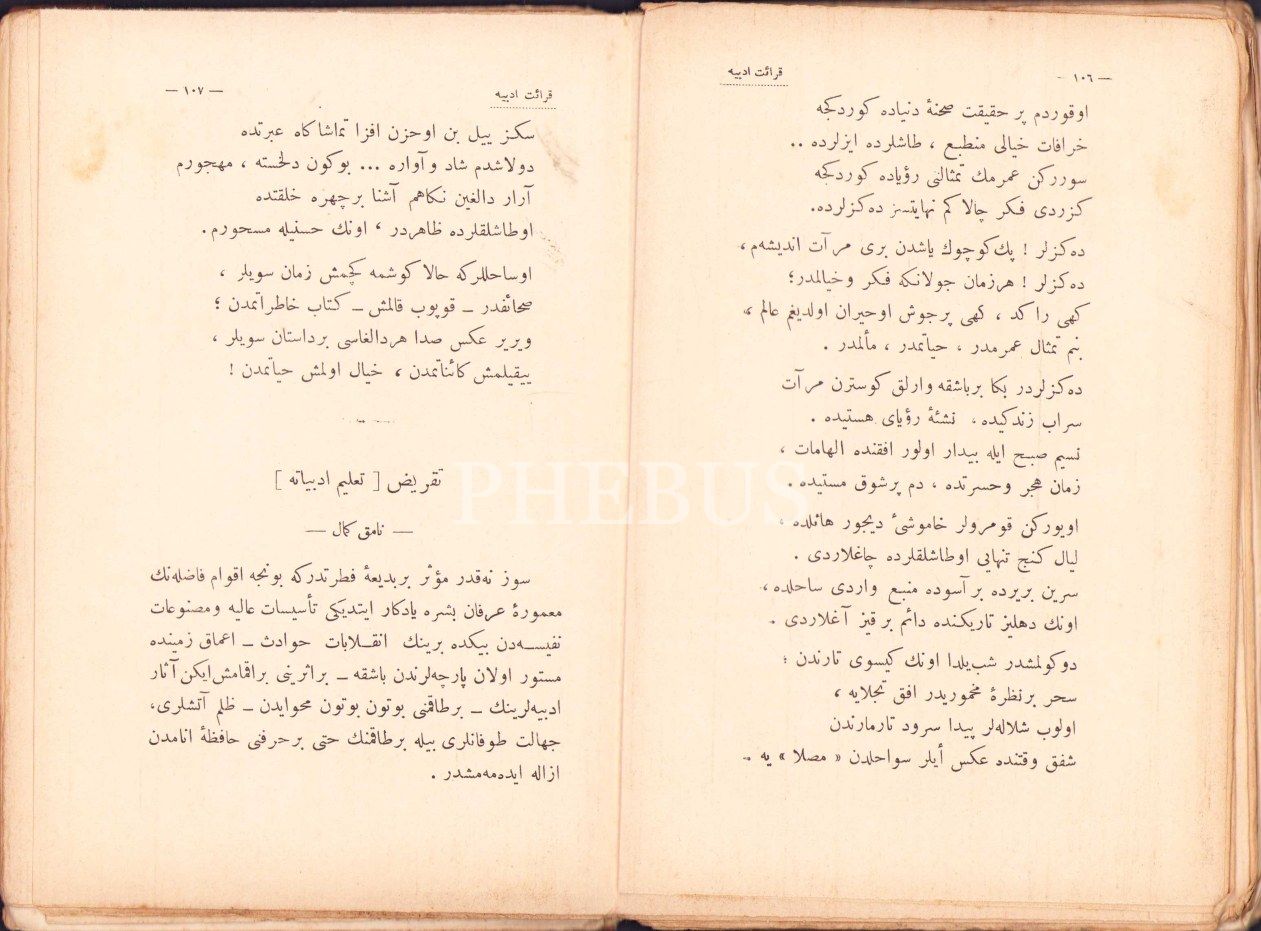 — ١٠٦ —
قرائت ادبيه
اوقوردم پر حقيقت صحنۀ دنياده كوردكجه
خرافات خيالى منطبع ، طاشلرده ايزلرده ..
سوردكن عمرمك تمثالنى رؤياده كوردكجه
كزردى فكر چالاكم نهايتسز ده‌كزلرده.
ده‌كزلر ! پك كوچوك ياشدن برى مرآت انديشه‌م ،
ده‌كزلر ! هرزمان جولانكه فكر وخيالمدر؛
كهى راكد ، كهى پرجوش اوحيران اولديغم عالم ،
بنم تمثال عمرمدر ، حياتمدر ، مألمدر .
ده‌كزلردر بكا برباشقه وارلق كوسترن مرآت
سراب زندكيده ، نشئۀ رؤياى هستيده .
نسيم صبح ايله بيدار اولور افقنده الهامات ،
زمان هجر وحسرتده ، دم پرشوق مستيده .
اويوركن قومرولر خاموشئ ديجور هائلده ،
ليال كنج تنهايى اوطاشلقلرده چاغلاردى .
سرين بريرده برآسوده منبع واردى ساحلده ،
اونك دهليز تاريكنده دائم برقيز آغلاردى .
دوكولمشدر شب‌يلدا اونك كيسوى تارندن ؛
سحر برنظرۀ مخموريدر افق تجلايه ،
اولوب شلاله‌لر پيدا سرود تارمارندن
شفق وقتنده عكس أيلر سواحلدن « مصلا » يه .
PHEBUS
— ١٠٧ —
قرائت ادبيه
سكز ييل بن اوحزن افزا تماشاكاه عبرتده
دولاشدم شاد و آواره ... بوكون دلخسته ، مهجورم
آرار دالغين نكاهم آشنا برچهره خلقتده
اوطاشلقلرده ظاهردر ، اونك حسنيله مسحورم.
اوساحللركه حالا كوشمه كچمش زمان سويلر ،
صحائفدر ــ قوپوب قالمش ــ كتاب خاطراتمدن ؛
ويرير عكس صدا هردالغاسى برداستان سويلر ،
ييقيلمش كائناتمدن ، خيال اولمش حياتمدن !
تقريض [ تعليم ادبياته ]
— نامق كمال —
سوز نه‌قدر مؤثر بربديعۀ فطرتدركه بونجه اقوام فاضله‌نك
معمورۀ عرفان بشره يادكار ايتديكى تأسيسات عاليه ومصنوعات
نفيسه‌دن بيكده برينك انقلابات حوادث ــ اعماق زمينده
مستور اولان پارچه‌لرندن باشقه ــ براثرينى براقمامش‌ايكن آثار
ادبيه‌لرينك ــ برطاقمنى بوتون بوتون محوايدن ــ ظلم آتشلرى،
جهالت طوفانلرى بيله برطاقمنك حتى برحرفنى حافظۀ انامدن
ازاله ايده‌مه‌مشدر .